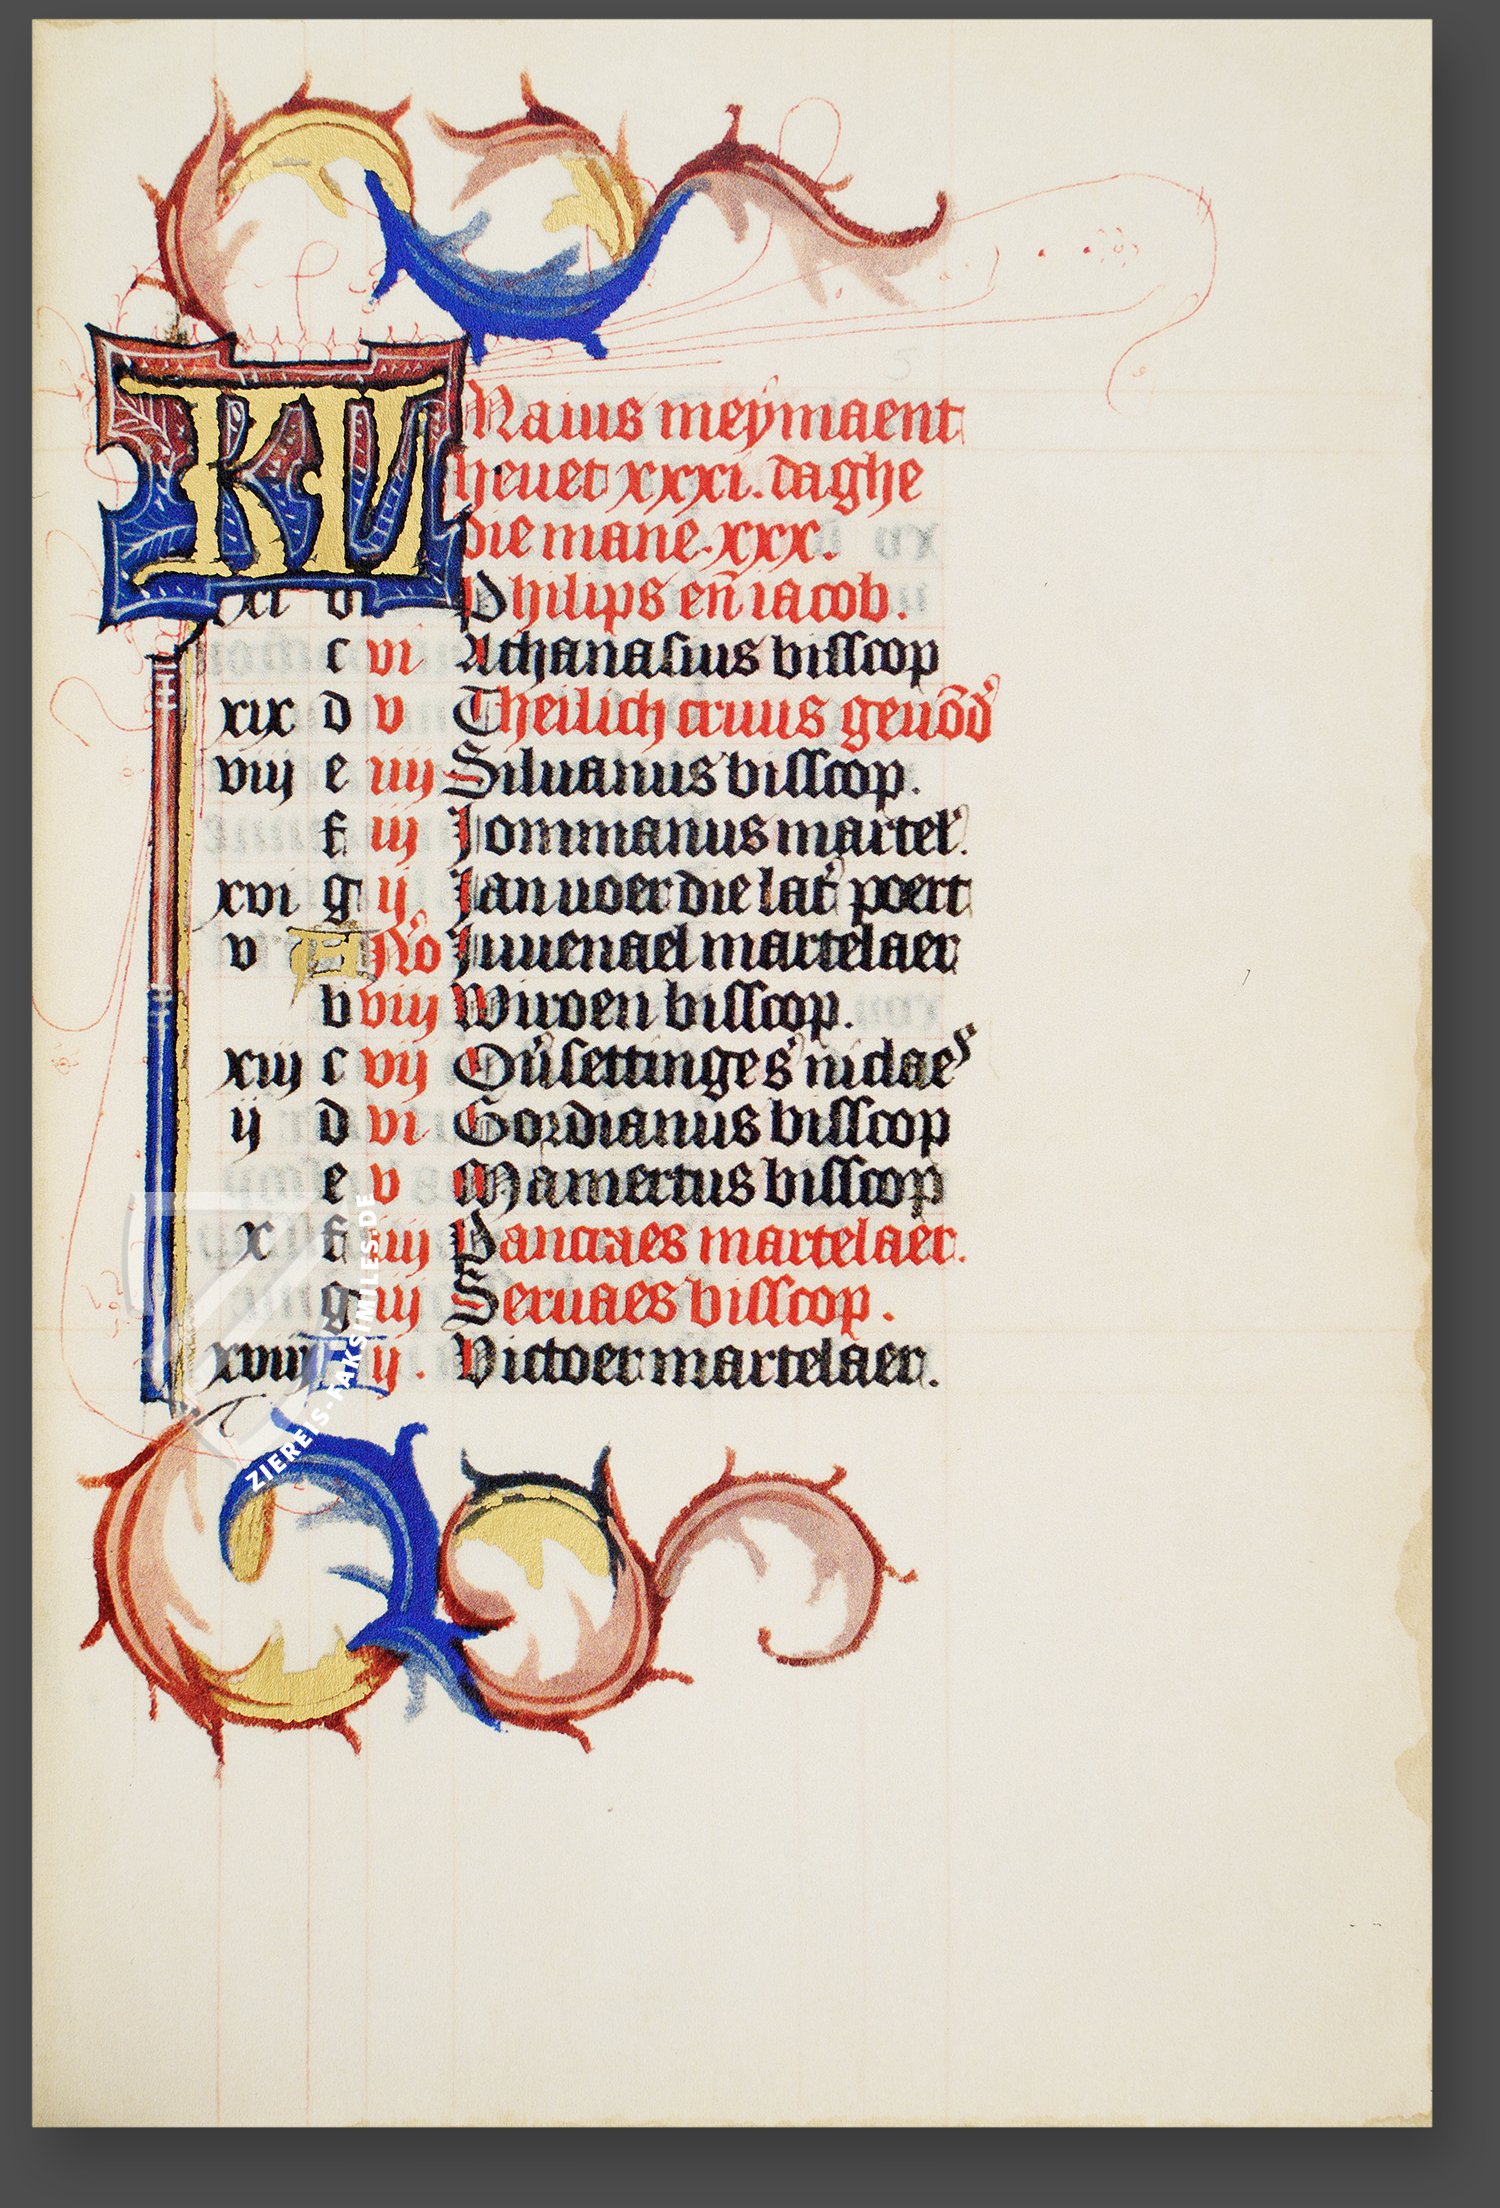 KL Maius meÿmaent
heuet xxxi. daghe
die mane. xxx.
xi vi Philips en̄ iacob.
c vi Athanasius bisscop
xix d v Theilich cruus geuōd
viij e iiij Siluanus bisscop.
f iij Jommanus martel'.
xvi g ij Jan voer die lat' poert
v A No Juuenael martelaer
b viij Wiroen bisscop.
xiij c vij niclaes
ij d vi Gordianus bisscop
e v Mamertus bisscop
x f iiij Pancraes martelaer.
g iij Seruaes bisscop.
xviij ij. Victoer martelaer.
ZIEREIS-FAKSIMILES.DE